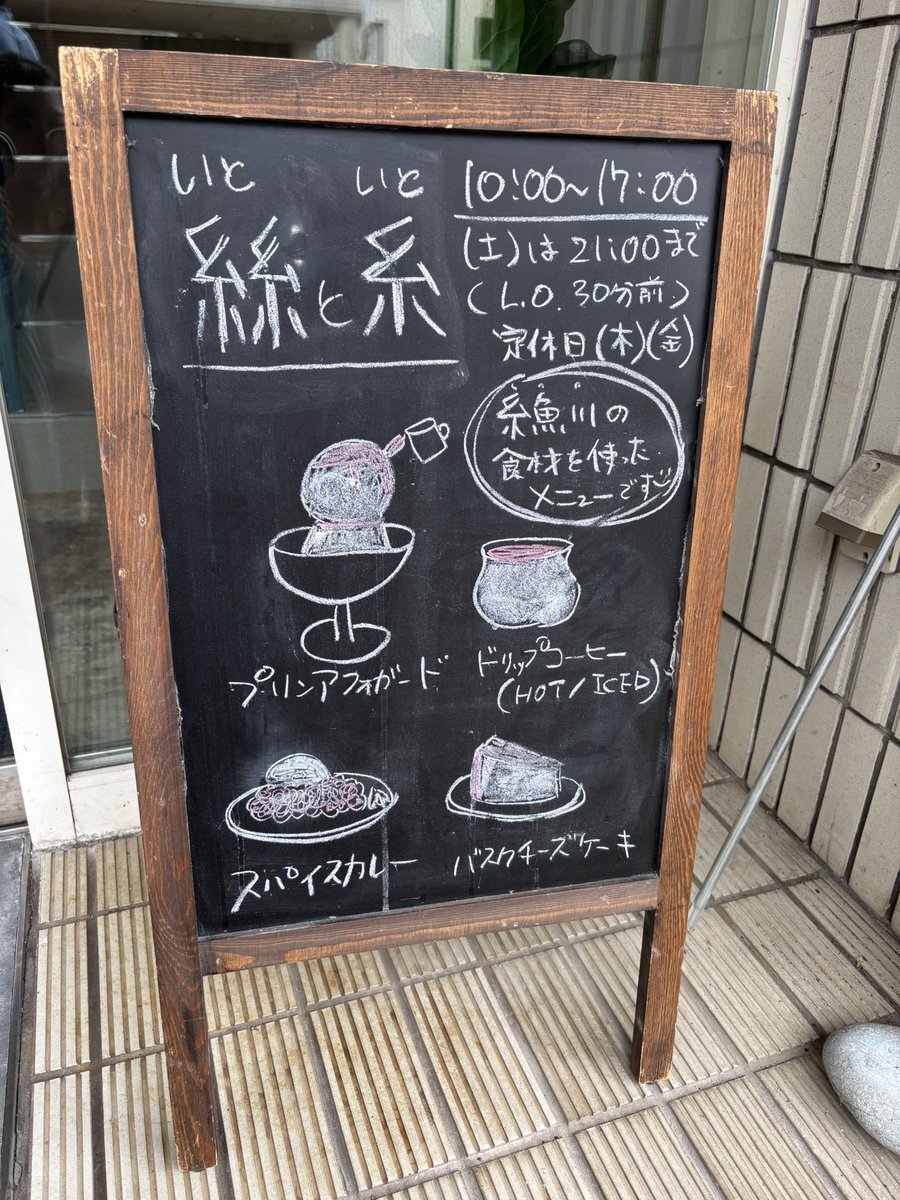 いと いと
絲と糸
10:00~17:00
(土)は21:00まで
(L.O.30分前)
定休日(木)(金)
糸魚川の
食材を使った
メニューです♪
プリンアフォガード
ドリップコーヒー
(HOT/ICED)
スパイスカレー
バスクチーズケーキ